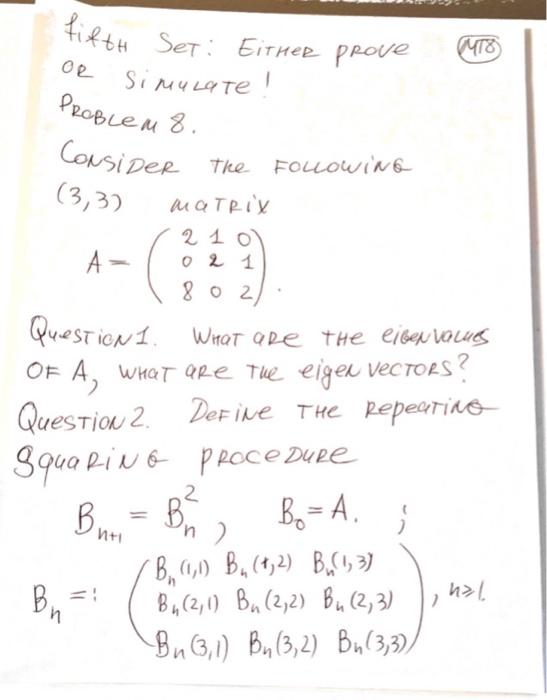 Fifth Set: Either prove (MT8)
or simulate!
Problem 8.
Consider the following
(3,3) matrix
A = ( 2 1 0
0 2 1
8 0 2 ).
Question 1. What are the eigenvalues
of A, what are the eigen vectors?
Question 2. Define the repeating
squaring procedure
B_{n+1} = B_n^2, B_0 = A. ;
B_n =: ( B_n(1,1) B_n(1,2) B_n(1,3)
B_n(2,1) B_n(2,2) B_n(2,3)
B_n(3,1) B_n(3,2) B_n(3,3) ), n≥1.